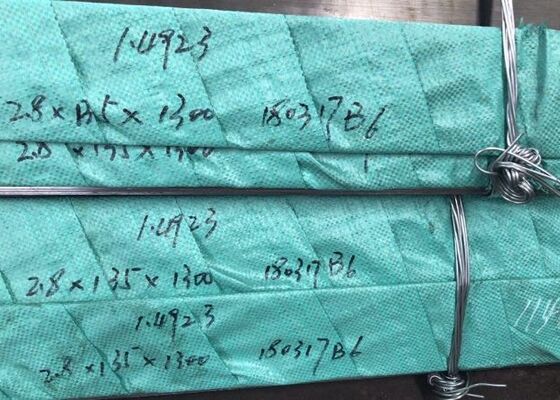 1.4923
2.8 x 135 x 1300 180317B6
2.8 x 135 x 1300
1.4923
2.8 x 135 x 1300 180317B6
1.4923
2.8 x 135 x 1300 180317B6